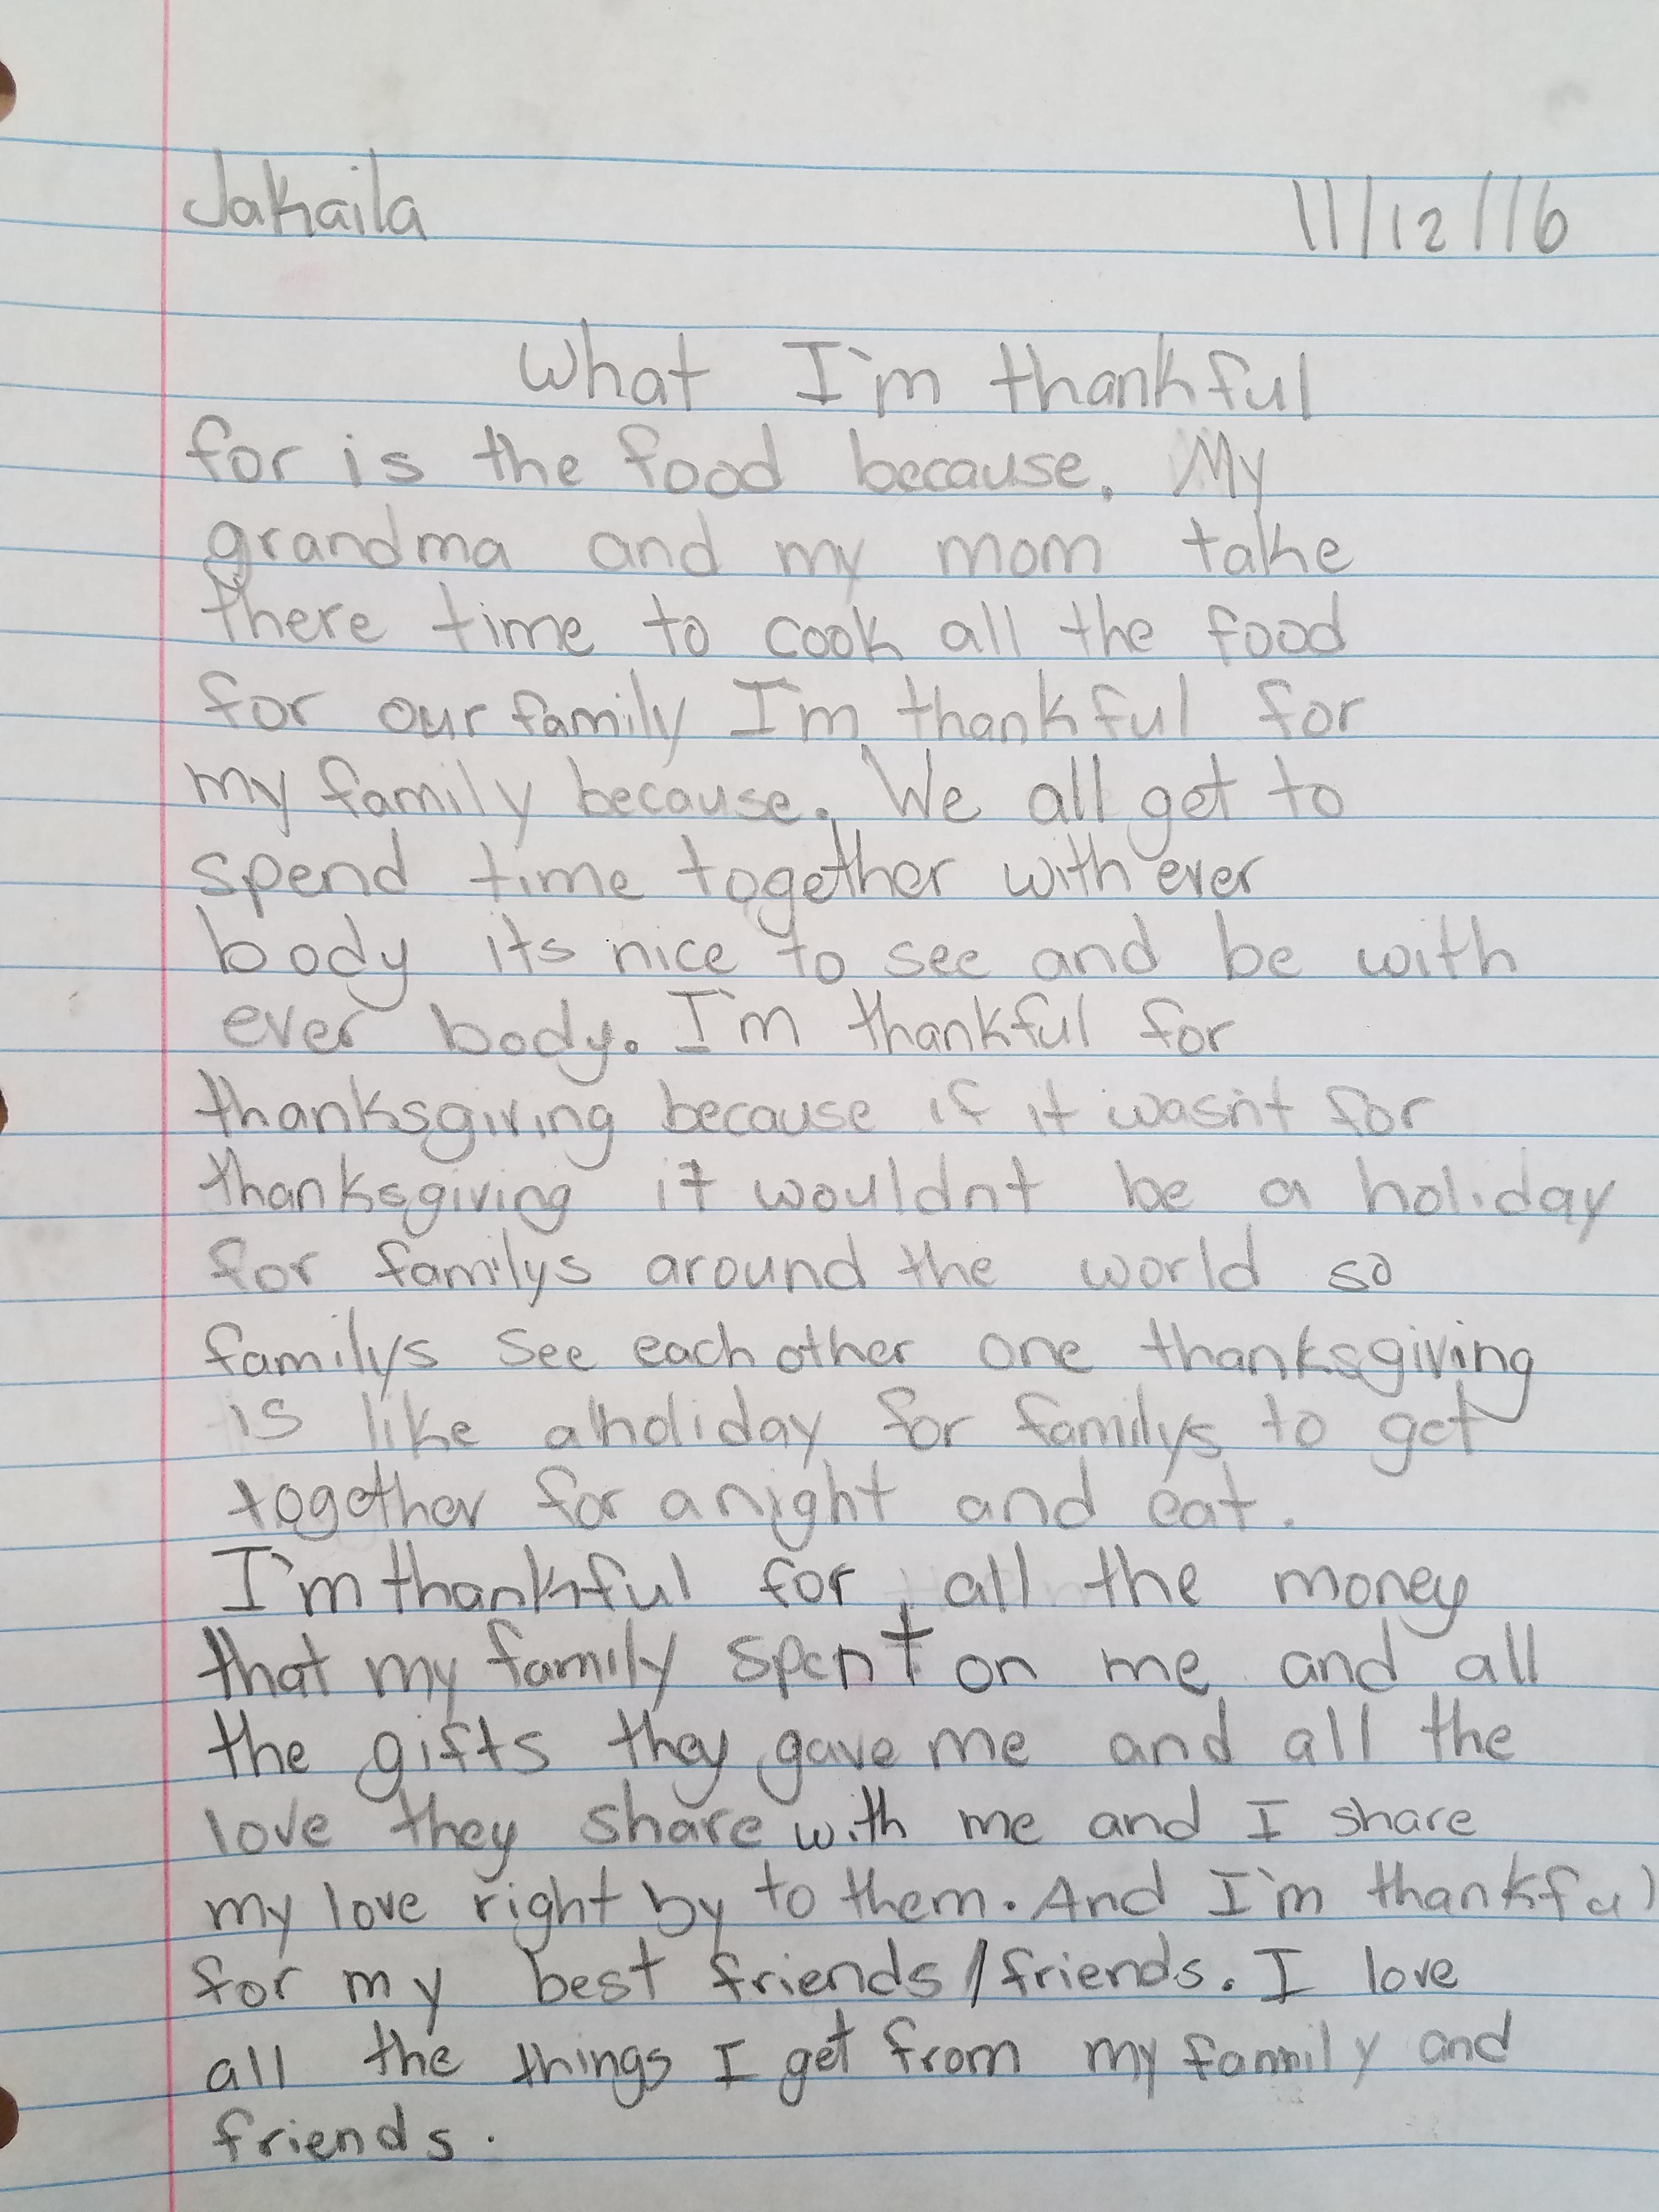 Jakaila 11/12/16
What I'm thankful
for is the food because. My
grandma and my mom take
there time to cook all the food
for our family I'm thankful for
my family because. We all get to
spend time together with ever
body its nice to see and be with
ever body. I'm thankful for
thanksgiving because if it wasn't for
thanksgiving it wouldnt be a holiday
for familys around the world so
familys see each other one thanksgiving
is like a holiday for familys to get
together for a night and eat.
I'm thankful for all the money
that my family spent on me and all
the gifts they gave me and all the
love they share with me and I share
my love right by to them. And I'm thankful
for my best friends/friends. I love
all the things I get from my family and
friends.